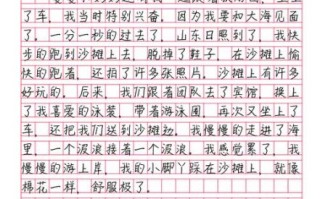 了车，我当时特别兴奋，因为我要和大海见面
了。一分一秒的过去了，山东日照到了，我快
步的跑到沙滩上去，脱掉了鞋子，在沙滩上愉
快的跑着，还拍了许多张照片，沙滩上有许多
好玩的。后来，我们跟着团队去了宾馆，换上
了我喜爱的泳装，带着游泳圈，再次又坐上了
车，还把我们送到沙滩边。我慢慢的走进了海
里，一个波浪接着一个波浪。我感觉累了，我
慢慢的游上岸，我的小脚丫踩在沙滩上，就像
棉花一样，舒服极了。